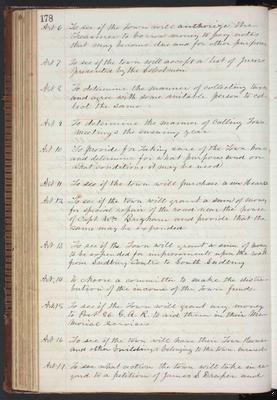 178
Art 6 To see if the Town will authorize the
Treasurer to borrow money to pay notes
that may become due and for other purposes
Art 7 To see if the town will accept a list of Jurors
presented by the Selectmen
Art 8 To determine the manner of collecting taxes
and agree with some suitable person to col
lect the same
Art 9 To determine the manner of calling Town
Meetings the ensuing year
Art 10 To provide for taking care of the Town house
and determine for what purposes and on
what conditions it may be used
Art 11 To see if the town will purchase a new Hearse
Art 12 To see if the town will grant a sum of money
for special repair of the road near the house
of Capt Wm and provide that the
same may be expended
Art 13 To see if the Town will grant a sum of money
to be expended for improvements upon the road
from Sudbury Centre to South Sudbury
Art 14 To choose a committee to make the distri
bution of the income of the Town funds
Art 15 To see if the Town will grant any money
to Post G. A. R. to aid them in their Me
morial services
Art 16 To see if the town will have their Town House
and other buildings belonging to the town insured
Art 17 To see what action the town will take in re
gard to a petition of James S Draper and